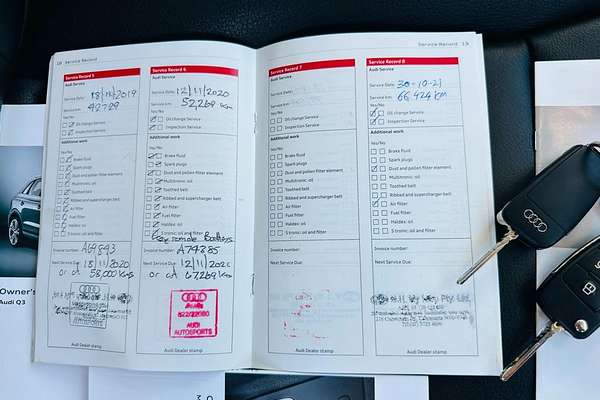 18 Service Record
Service Record 5
Audi Service
Service Date: 18/11/2019
Service km: 42729
Yes/No
Oil change Service
Inspection Service
Additional work
Yes/No
Brake fluid
Spark plugs
Dust and pollen filter element
Multitronic: oil
Toothed belt
Ribbed and supercharger belt
Air filter
Fuel filter
Haldex: oil
S tronic: oil and filter
Invoice number:
Next Service Due:
or at 58,000 Kms
Audi Dealer stamp
Service Record 6
Audi Service
Service Date: 12/11/2020
Service km: 52,269 Km
Yes/No
Oil change Service
Inspection Service
Additional work
Yes/No
Brake fluid
Spark plugs
Dust and pollen filter element
Multitronic: oil
Toothed belt
Ribbed and supercharger belt
Air filter
Fuel filter
Haldex: oil
S tronic: oil and filter
Key remote
Invoice number:
Next Service Due: 12/11/202
or at 67269 Km
Audi
AUDI
AUTOSPORTS
Audi Dealer stamp
Service Record 19
Service Record 7
Audi Service
Service Date:
Service km:
Yes/No
Oil change Service
Inspection Service
Additional work
Yes/No
Brake fluid
Spark plugs
Dust and pollen filter element
Multitronic: oil
Toothed belt
Ribbed and supercharger belt
Air filter
Fuel filter
Haldex: oil
S tronic: oil and filter
Invoice number:
Next Service Due:
Audi Dealer stamp
Service Record 8
Audi Service
Service Date: 30-10-21
Service km: 66,424 KM
Yes/No
Oil change Service
Inspection Service
Additional work
Yes/No
Brake fluid
Spark plugs
Dust and pollen filter element
Multitronic: oil
Toothed belt
Ribbed and supercharger belt
Air filter
Fuel filter
Haldex: oil
S tronic: oil and filter
Invoice number:
Next Service Due:
Audi Dealer stamp
Owner's
Audi Q3
3.0